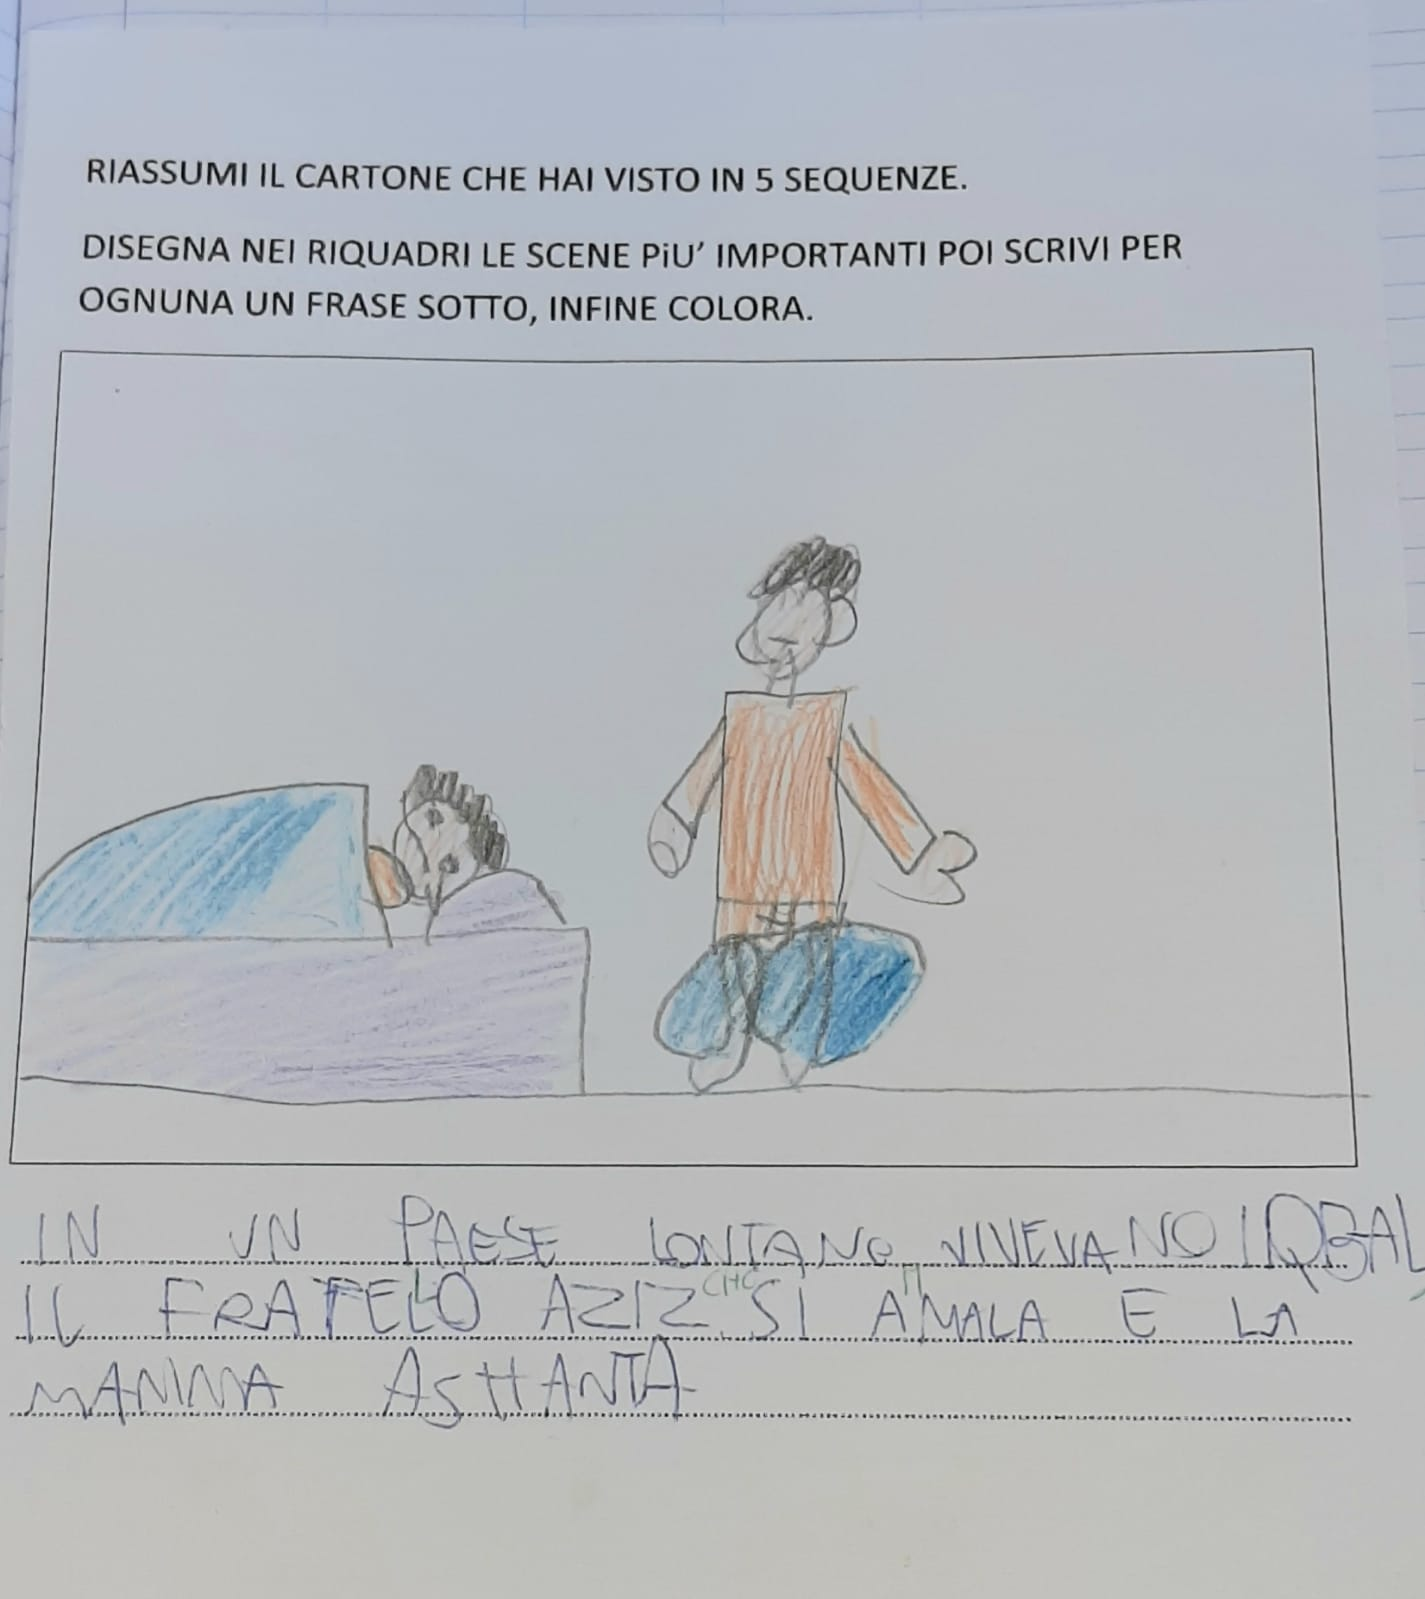 RIASSUMI IL CARTONE CHE HAI VISTO IN 5 SEQUENZE.
DISEGNA NEI RIQUADRI LE SCENE PiU' IMPORTANTI POI SCRIVI PER
OGNUNA UN FRASE SOTTO, INFINE COLORA.
IN UN PAESE LONTANO VIVEVANO IQBAL,
IL FRATELLO AZIZ CHE SI AMMALA E LA
MAMMA ASHANTA